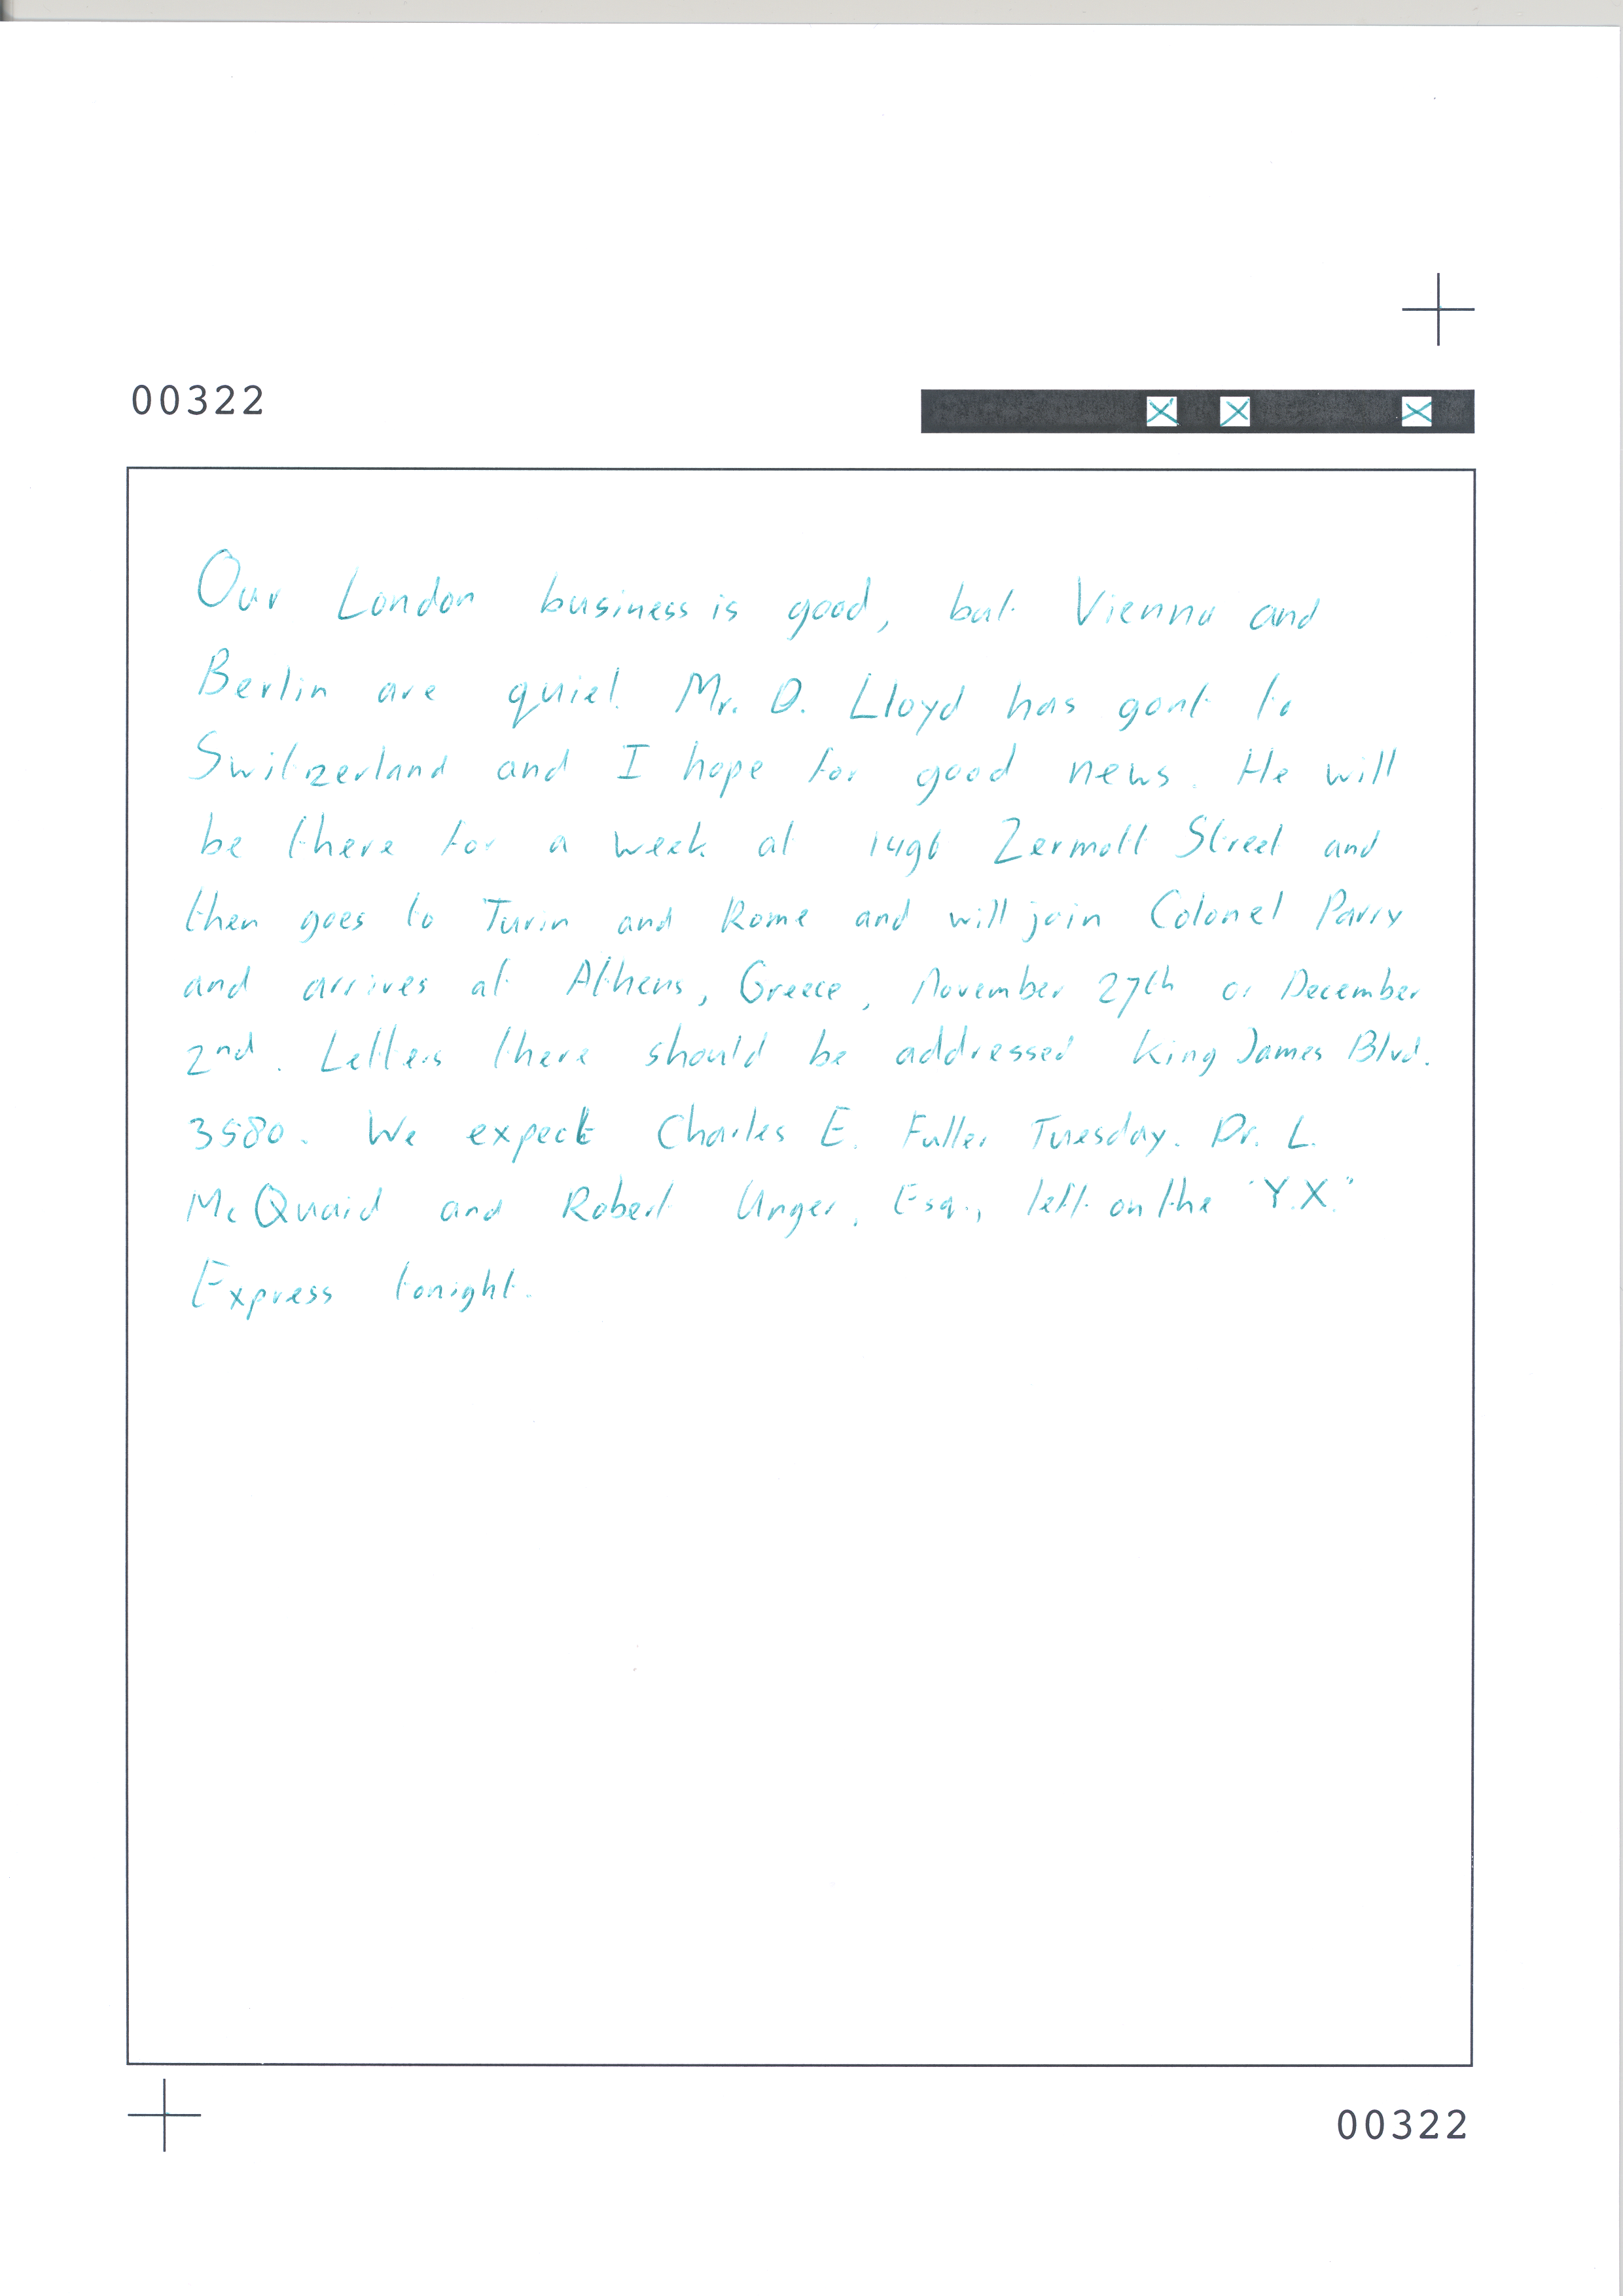 00322
Our London business is good, but Vienna and
Berlin are quiet. Mr. D. Lloyd has gont to
Switzerland and I hope for good news. He will
be there for a week at 1496 Zermott Street and
then goes to Turin and Rome and will join Colonel Parry
and arrives at Athens, Greece, November 27th or December
2nd. Letters there should be addressed King James Blvd.
3580. We expect Charles E. Fuller Tuesday. Dr. L.
McQuaid and Robert Unger, Esq., left on the "Y.X."
Express tonight.
00322